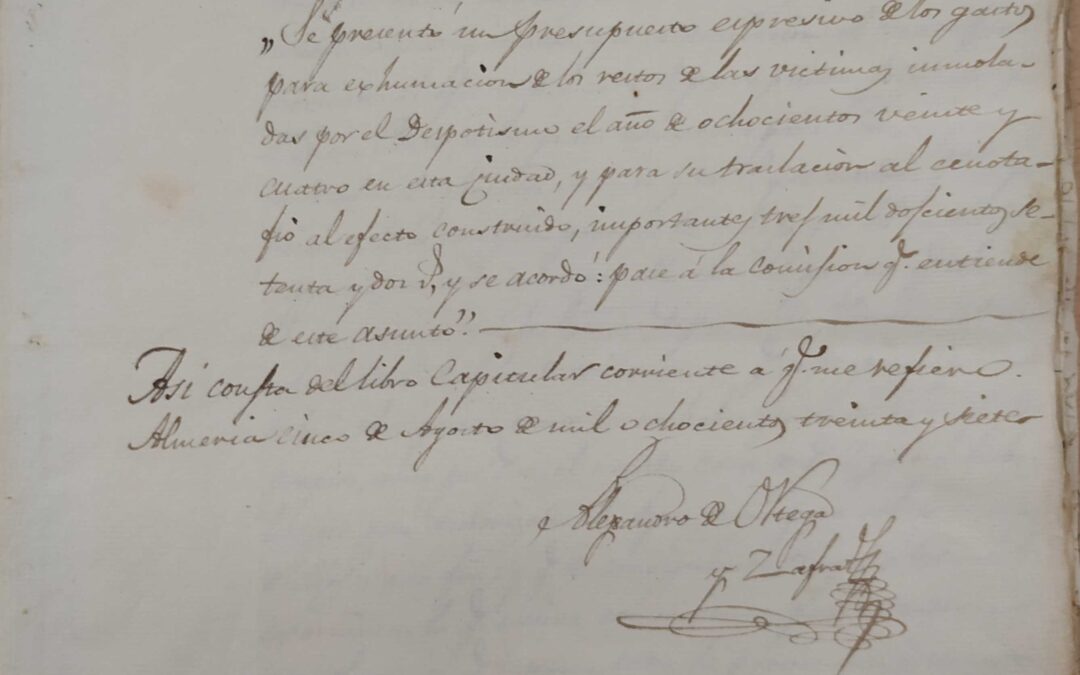 „Se presentó un presupuesto espresivo de los gastos
para exhumacion de los restos de las victimas inmola-
das por el Despotismo el año de ochocientos veinte y
cuatro en esta Ciudad, y para su traslacion al cenota-
fio al efecto construido, importantes tres mil doscientos se-
tenta y dos r.s, y se acordó: pase á la Comision q.e entiende
de este asunto."
Asi consta del libro Capitular corriente á q.e me refiero.
Almeria cinco de Agosto de mil ochocientos treinta y siete
Alexandro de Ortega
y Zafra